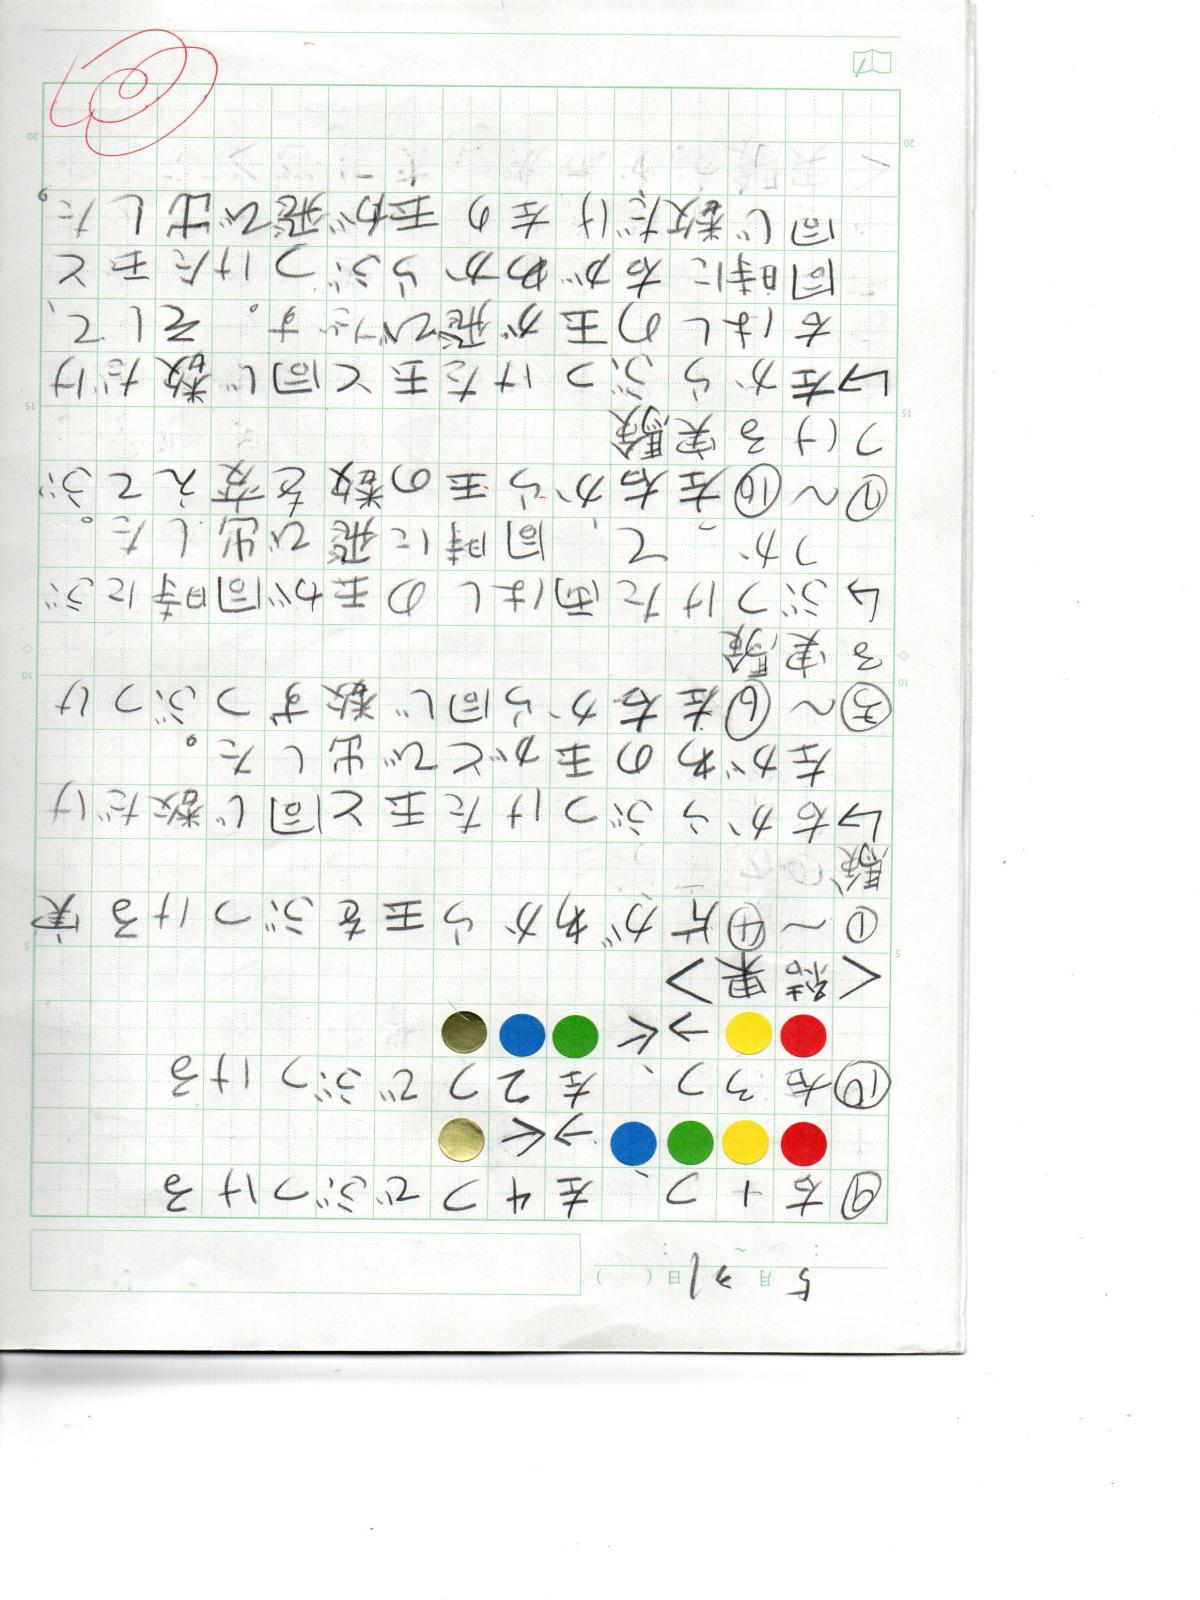 5月31日( )
: ～ :
⑨右1つ、左4つでぶつける
→←
⑩右3つ、左2つでぶつける
→←
<結果>
①～④片がわから玉をぶつける実
験
↳右からぶつけた玉と同じ数だけ
左がわの玉がとび出した。
③～⑥左右から同じ数ずつぶつけ
る実験
↳ぶつけた両はしの玉が同時にぶ
つかって、同時に飛び出した。
⑦～⑩左右から玉の数を変えてぶ
つける実験
↳左からぶつけた玉と同じ数だけ
右はしの玉が飛びだす。そして、
同時に右がわからぶつけた玉と
同じ数だけ左の玉が飛び出した。